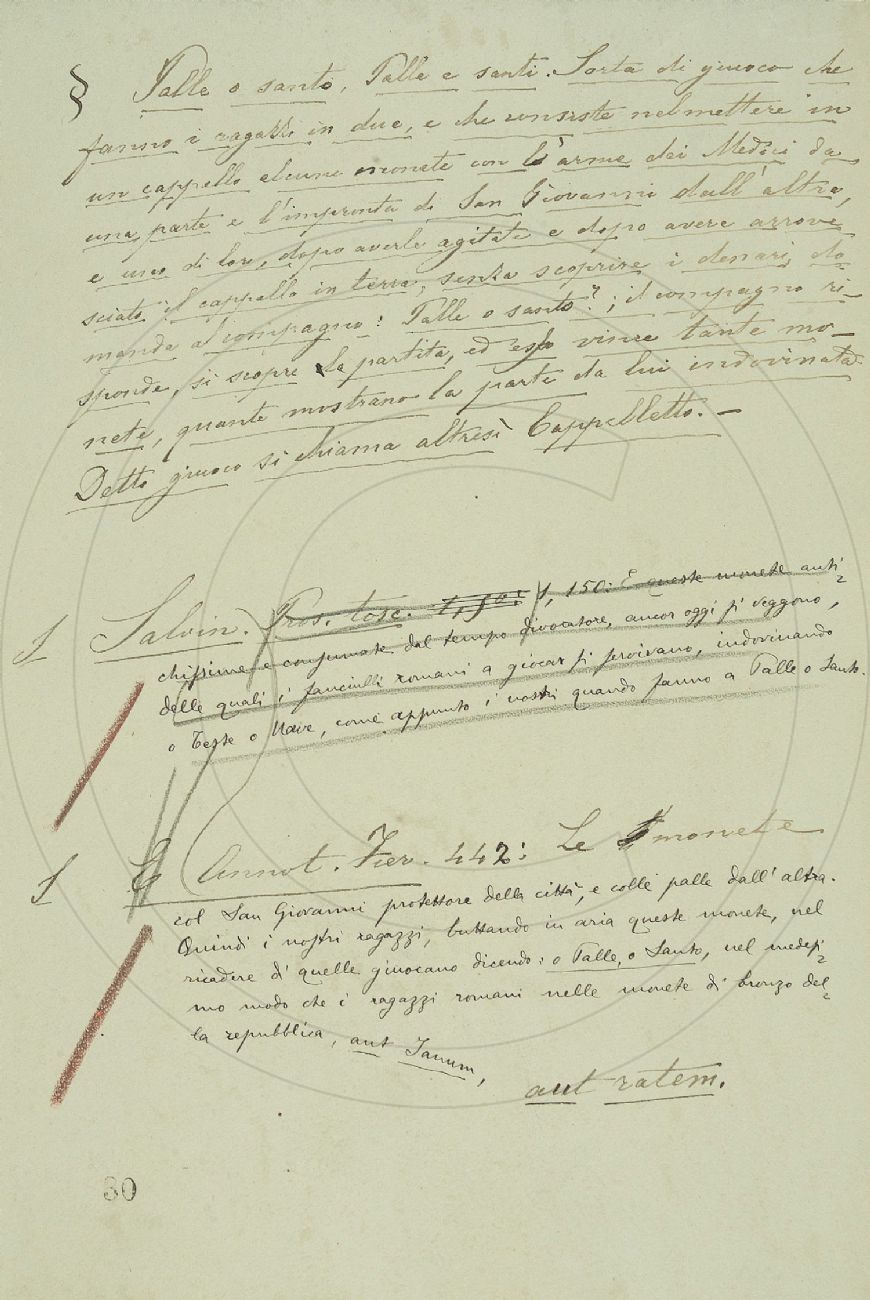 § Palle o santo, Palle e santi. Sorta di giuoco che
fanno i ragazzi in due, e che consiste nel mettere in
un cappello alcune monete con l'arme dei Medici da
una parte e l'impronta di San Giovanni dall'altra,
e uno di loro, dopo averle agitate e dopo avere arrove
sciato il cappello in terra, senza scoprire i denari, do
manda al compagno: Palle o santo?; il compagno ri-
sponde, si scopre la partita, ed esso vince tante mo-
nete, quante mostrano la parte da lui indovinata.
Detto giuoco si chiama altresì Cappelletto. -
Salvin. Pros. tosc. 1, 150: E queste monete anti=
chissime e consumate dal tempo divoratore, ancor oggi si veggono,
delle quali i fanciulli romani a giocar si servivano, indovinando
o Teste o Nave, come appunto i nostri quando fanno a Palle o Santo.
E Annot. Fier. 442: Le monete
col San Giovanni protettore della città, e colle palle dall'altra.
Quindi i nostri ragazzi, buttando in aria queste monete, nel
ricadere di quelle giuocano dicendo: o Palle, o Santo, nel medesi=
mo modo che i ragazzi romani nelle monete di bronzo del=
la repubblica, aut Ianum,
aut ratem.
30